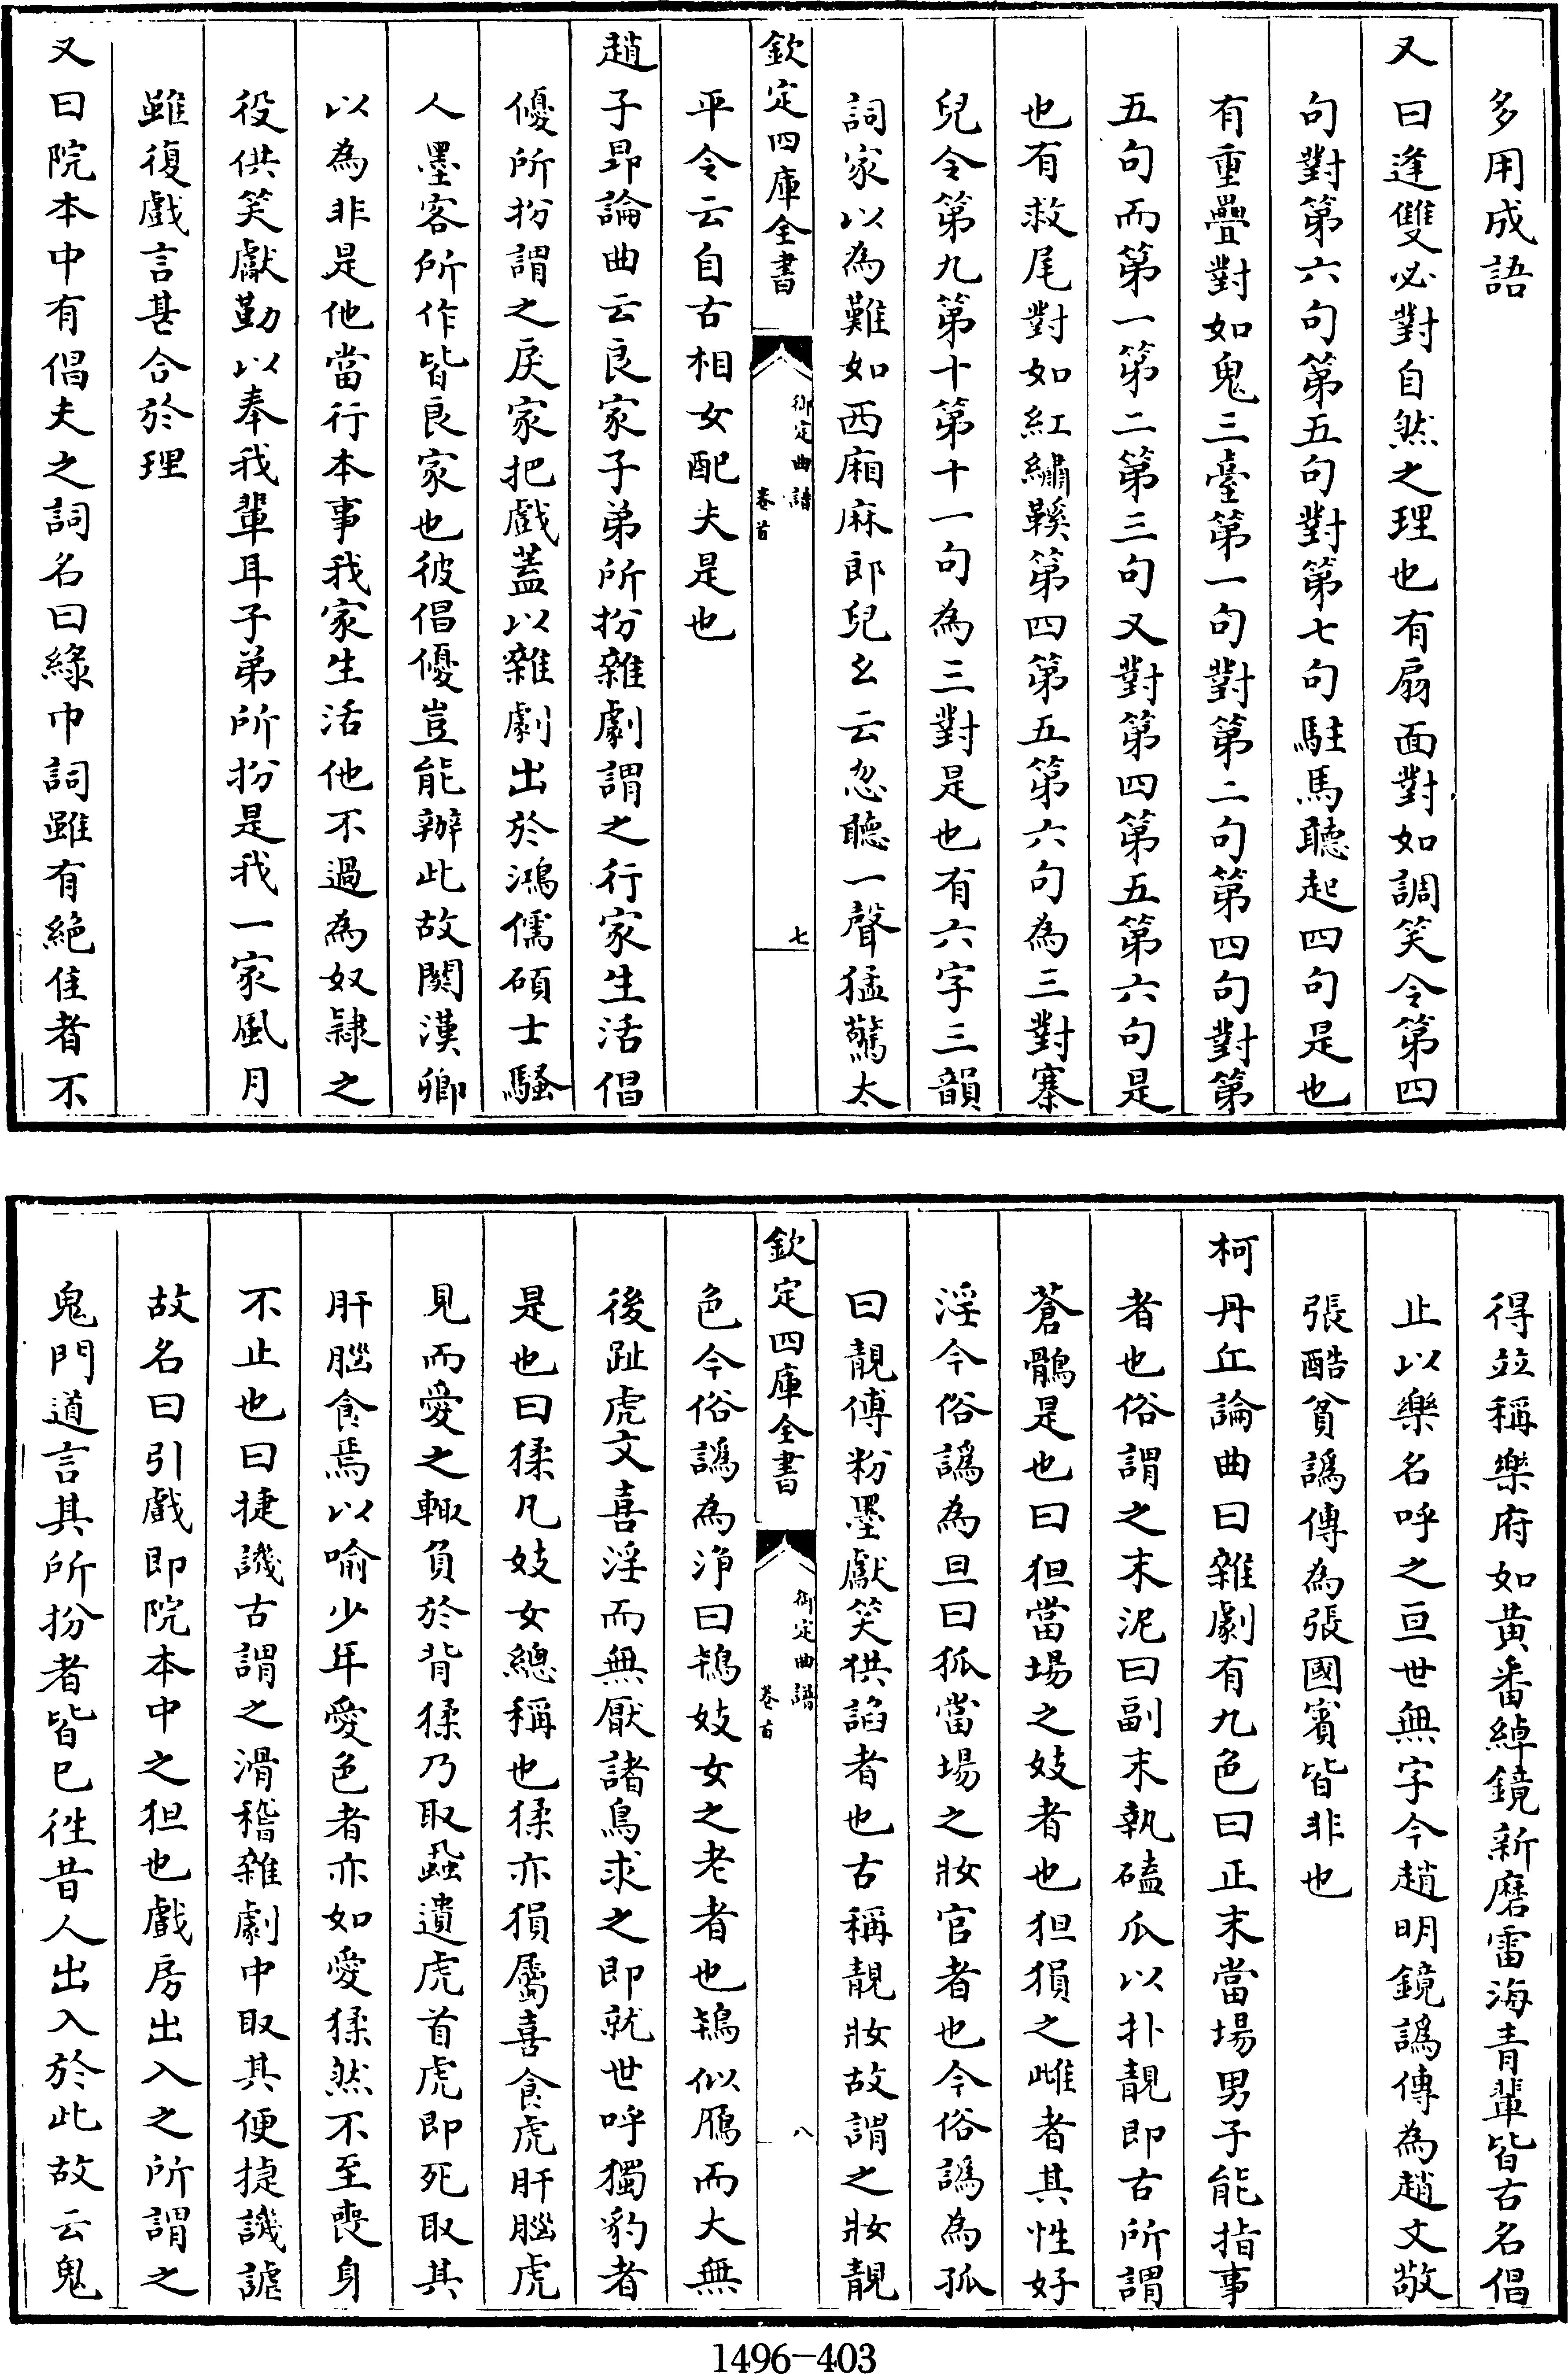 多用成語
又曰逢雙必對自然之理也有扇面對如調笑令第四
句對第六句第五句對第七句駐馬聽起四句是也
有重疊對如鬼三臺第一句對第二句第四句對第
五句而第一第二第三句又對第四第五第六句是
也有救尾對如紅繡鞵第四第五第六句為三對寨
兒令第九第十第十一句為三對是也有六字三韻
詞家以為難如西廂麻郎兒幺云忽聽一聲猛驚太
欽定四庫全書
御定曲譜
卷首
七
平令云自古相女配夫是也
趙子昂論曲云良家子弟所扮雜劇謂之行家生活倡
優所扮謂之戾家把戲蓋以雜劇出於鴻儒碩士騷
人墨客所作皆良家也彼倡優豈能辦此故關漢卿
以為非是他當行本事我家生活他不過為奴隷之
役供笑獻勤以奉我輩耳子弟所扮是我一家風月
雖復戲言甚合於理
又曰院本中有倡夫之詞名曰綠巾詞雖有絕佳者不
得竝稱樂府如黃番綽鏡新磨雷海青輩皆古名倡
止以樂名呼之亘世無字今趙明鏡譌傳為趙文敬
張酷貧譌傳為張國賓皆非也
柯丹丘論曲曰雜劇有九色曰正末當場男子能指事
者也俗謂之末泥曰副末執磕瓜以扑靚即古所謂
蒼鶻是也曰狚當場之妓者也狚猿之雌者其性好
淫今俗譌為旦曰狐當場之妝官者也今俗譌為孤
曰靚傅粉墨獻笑供諂者也古稱靚妝故謂之妝靚
欽定四庫全書
御定曲譜
卷首
八
色今俗譌為淨曰鴇妓女之老者也鴇似鴈而大無
後趾虎文喜淫而無厭諸鳥求之即就世呼獨豹者
是也曰猱凡妓女總稱也猱亦猿屬喜食虎肝腦虎
見而愛之輙負於背猱乃取蝨遺虎首虎即死取其
肝腦食焉以喻少年愛色者亦如愛猱然不至喪身
不止也曰捷譏古謂之滑稽雜劇中取其便捷譏謔
故名曰引戲即院本中之狚也戲房出入之所謂之
鬼門道言其所扮者皆已徃昔人出入於此故云鬼
1496-403